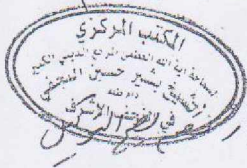 المكتب المركزي
لسماحة آية الله العظمى المرجع الديني الكبير
الشيخ بشير حسين النجفي
دام ظله
في النجف الاشرف